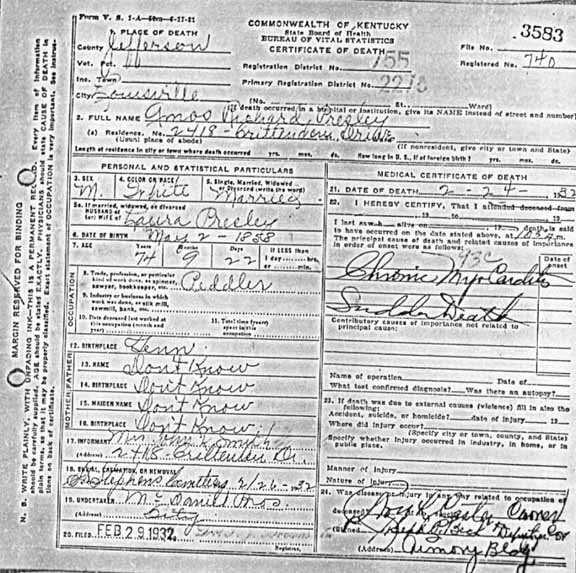 Form V. S. 1-A
COMMONWEALTH OF KENTUCKY
State Board of Health
BUREAU OF VITAL STATISTICS
CERTIFICATE OF DEATH
File No. 3583
Registered No. 740
PLACE OF DEATH
County Jefferson
Vot. Pct.
Inc. Town
City Louisville
Registration District No. 755
Primary Registration District No.
(No. St., Ward)
(If death occurred in a hospital or institution, give its NAME instead of street and number)
2 FULL NAME Amos Richard Presley
(a) Residence, No. 2418 - Crittenden Drive
(Usual place of abode) (If nonresident, give city or town and State)
Length of residence in city or town where death occurred yrs. mos. ds. How long in U. S., if of foreign birth? yrs. mos. ds.
PERSONAL AND STATISTICAL PARTICULARS
3. SEX M.
4. COLOR OR RACE White
5. Single, Married, Widowed or Divorced (write the word) Married
5a. If married, widowed, or divorced
HUSBAND of
(or) WIFE of Laura Presley
6. DATE OF BIRTH May 2 - 1858
7. AGE Years 74 Months 9 Days 22 If LESS than 1 day hrs. or min.
OCCUPATION
8. Trade, profession, or particular kind of work done, as spinner, sawyer, bookkeeper, etc. Peddler
9. Industry or business in which work was done, as silk mill, sawmill, bank, etc.
10. Date deceased last worked at this occupation (month and year)
11. Total time (years) spent in this occupation
12. BIRTHPLACE Tenn
FATHER
13. NAME Dont Know
14. BIRTHPLACE Dont Know
MOTHER
15. MAIDEN NAME Dont Know
16. BIRTHPLACE Dont Know
17. INFORMANT Mrs
(Address) 2418 - Crittenden Dr.
18. BURIAL, CREMATION, OR REMOVAL
St Stephens Cemetery 2/26-32
19. UNDERTAKER Mc Daniel Bros
(Address) City
20. FILED FEB 29 1932
Registrar.
MEDICAL CERTIFICATE OF DEATH
21. DATE OF DEATH 2-24-
22. I HEREBY CERTIFY, That I attended deceased from
19 to 19
I last saw h alive on 19 death is said
to have occurred on the date stated above, at m.
The principal cause of death and related causes of importance in order of onset were as follows:
Date of onset
93C
Chronic Myocarditis
Sudden Death
Contributory causes of importance not related to principal cause:
Name of operation Date of
What test confirmed diagnosis? Was there an autopsy?
23. If death was due to external causes (violence) fill in also the following:
Accident, suicide, or homicide? date of injury 19
Where did injury occur?
(Specify city or town, county, and State)
Specify whether injury occurred in industry, in home, or in public place.
Manner of injury
Nature of injury
24. Was disease or injury in any way related to occupation of deceased?
Coroner
(Signed)
(Address) Armory Bldg
MARGIN RESERVED FOR BINDING
N. B. WRITE PLAINLY, WITH UNFADING INK—THIS IS A PERMANENT RECORD. Every item of information should be carefully supplied. AGE should be stated EXACTLY. PHYSICIANS should state CAUSE OF DEATH in plain terms, so that it may be properly classified. Exact statement of OCCUPATION is very important. See instructions on back of certificate.